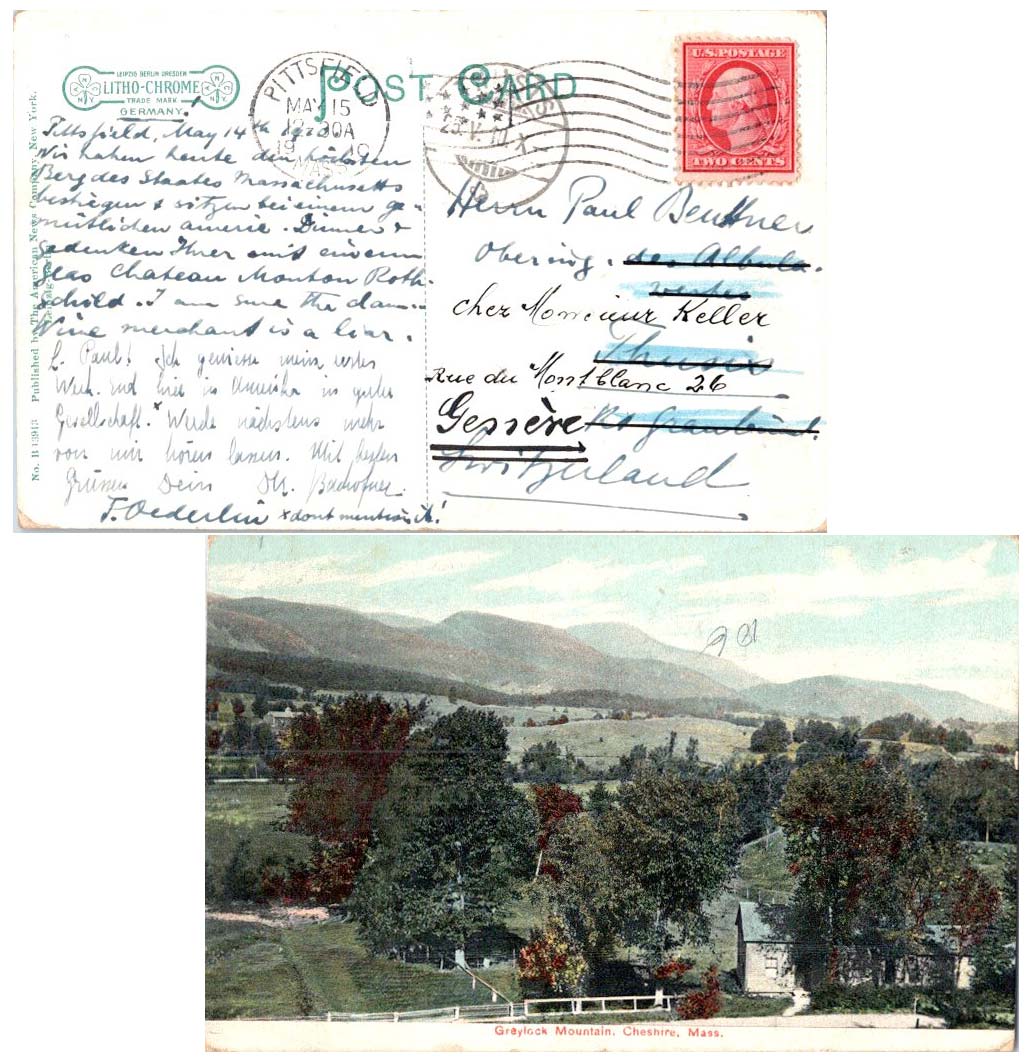 LEIPZIG BERLIN DRESDEN
LITHO-CHROME
TRADE MARK
GERMANY!
POST CARD
PITTSFIELD
MAY 15
12 30A
1910
MASS.
THUSIS
25.V.10.X
U.S. POSTAGE
TWO CENTS
No. B 13913 Published by The American News Company, New York.
Leipzig, Berlin
Pittsfield, May 14th 1910
Wir haben heute den höchsten
Berg des Staates Massachusetts
bestiegen & sitzen bei einem ge-
mütlichen americ. Dinner &
gedenken Ihrer mit einem
Glas Chateau Mouton Roth-
schild. I am sure the dam-
Wine merchant is a liar.
L. Paul! Ich geniesse mein erstes
Week-end hier in Amerika in guter
Gesellschaft.x Werde nächstens mehr
von mir hören lassen. Mit besten
Grüssen Dein
T. Oederlin x dont mention it!
Herrn Paul Beuttner
Obering. des Albula-
werkes
chez Monsieur Keller
Thusis
Rue du Montblanc 26
Genève Kt. Graubünd.
Switzerland
Greylock Mountain, Cheshire, Mass.